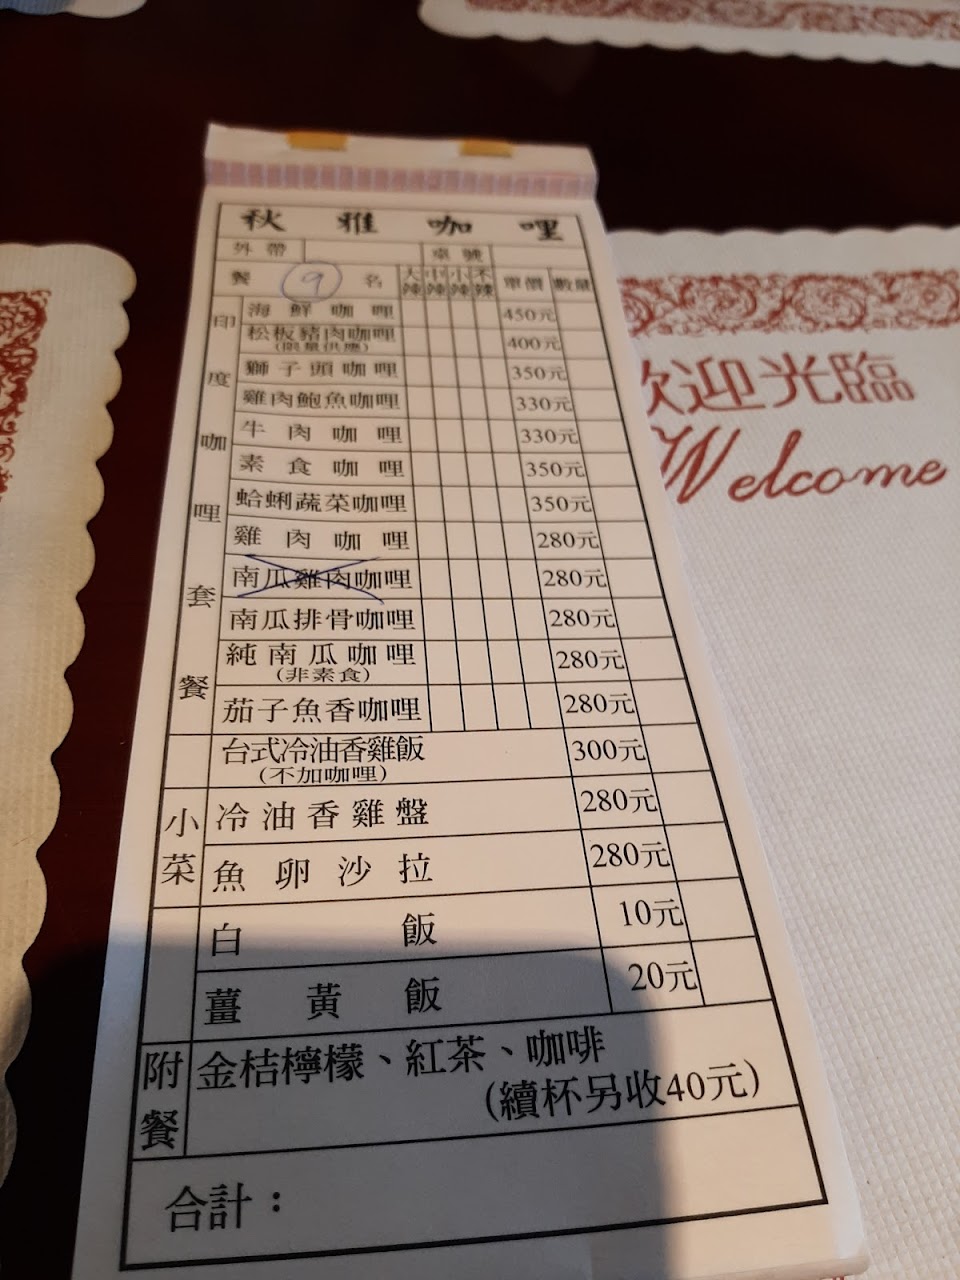 秋雅咖哩
外帶 桌號
餐 9 名 大辣 中辣 小辣 不辣 單價 數量
印度咖哩套餐
海鮮咖哩 450元
松板豬肉咖哩 400元
(限量供應)
獅子頭咖哩 350元
雞肉鮑魚咖哩 330元
牛肉咖哩 330元
素食咖哩 350元
蛤蜊蔬菜咖哩 350元
雞肉咖哩 280元
南瓜雞肉咖哩 280元
南瓜排骨咖哩 280元
純南瓜咖哩 280元
(非素食)
茄子魚香咖哩 280元
台式冷油香雞飯 300元
(不加咖哩)
小菜
冷油香雞盤 280元
魚卵沙拉 280元
白飯 10元
薑黃飯 20元
附餐
金桔檸檬、紅茶、咖啡
(續杯另收40元)
合計：
歡迎光臨
Welcome